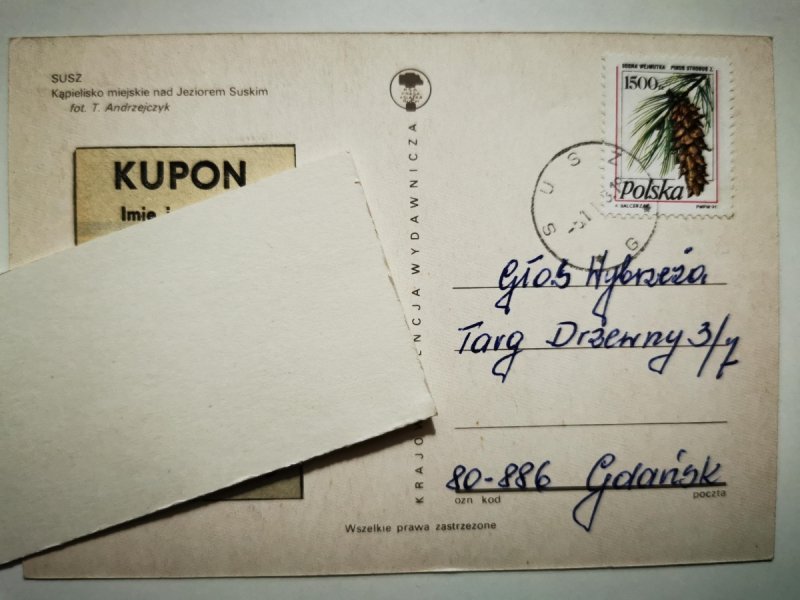 SUSZ
Kąpielisko miejskie nad Jeziorem Suskim
fot. T. Andrzejczyk
KUPON
Imię i
WYDAWNICZA
SOSNA WEJMUTKA PINUS STROBUS L.
1500zł
Polska
PWPW 91
SUSZ
Głos Wybrzeża
Targ Drzewny 3/7
80-886 Gdańsk
ozn kod
poczta
Wszelkie prawa zastrzeżone